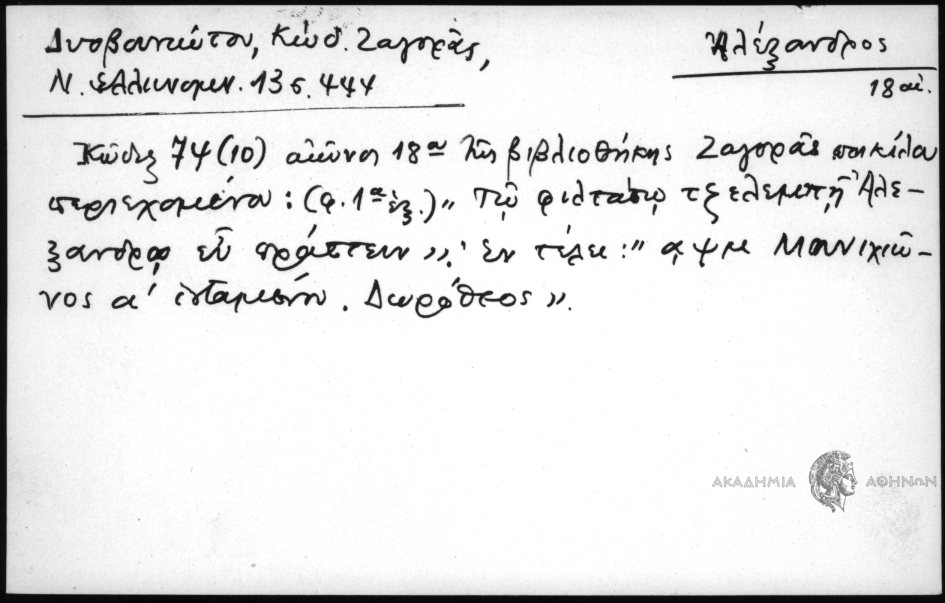 Δυοβουνιώτου, Κώδ. Ζαγορᾶς,
Ν. Ἑλληνομν. 13 σ. 444
Ἀλέξανδρος
18 αἰ.
Κῶδιξ 74 (10) αἰῶνος 18ου τῆς βιβλιοθήκης Ζαγορᾶς ποικίλου
περιεχομένου: (φ. 1α ἐξ.) „Τῷ φιλτάτῳ τζελεμπῆ Ἀλε-
ξάνδρῳ εὖ πράττειν». Ἐν τέλει: "αψμ Μουνιχιῶ-
νος α' ἱσταμένου. Δωρόθεος».
ΑΚΑΔΗΜΙΑ ΑΘΗΝΩΝ